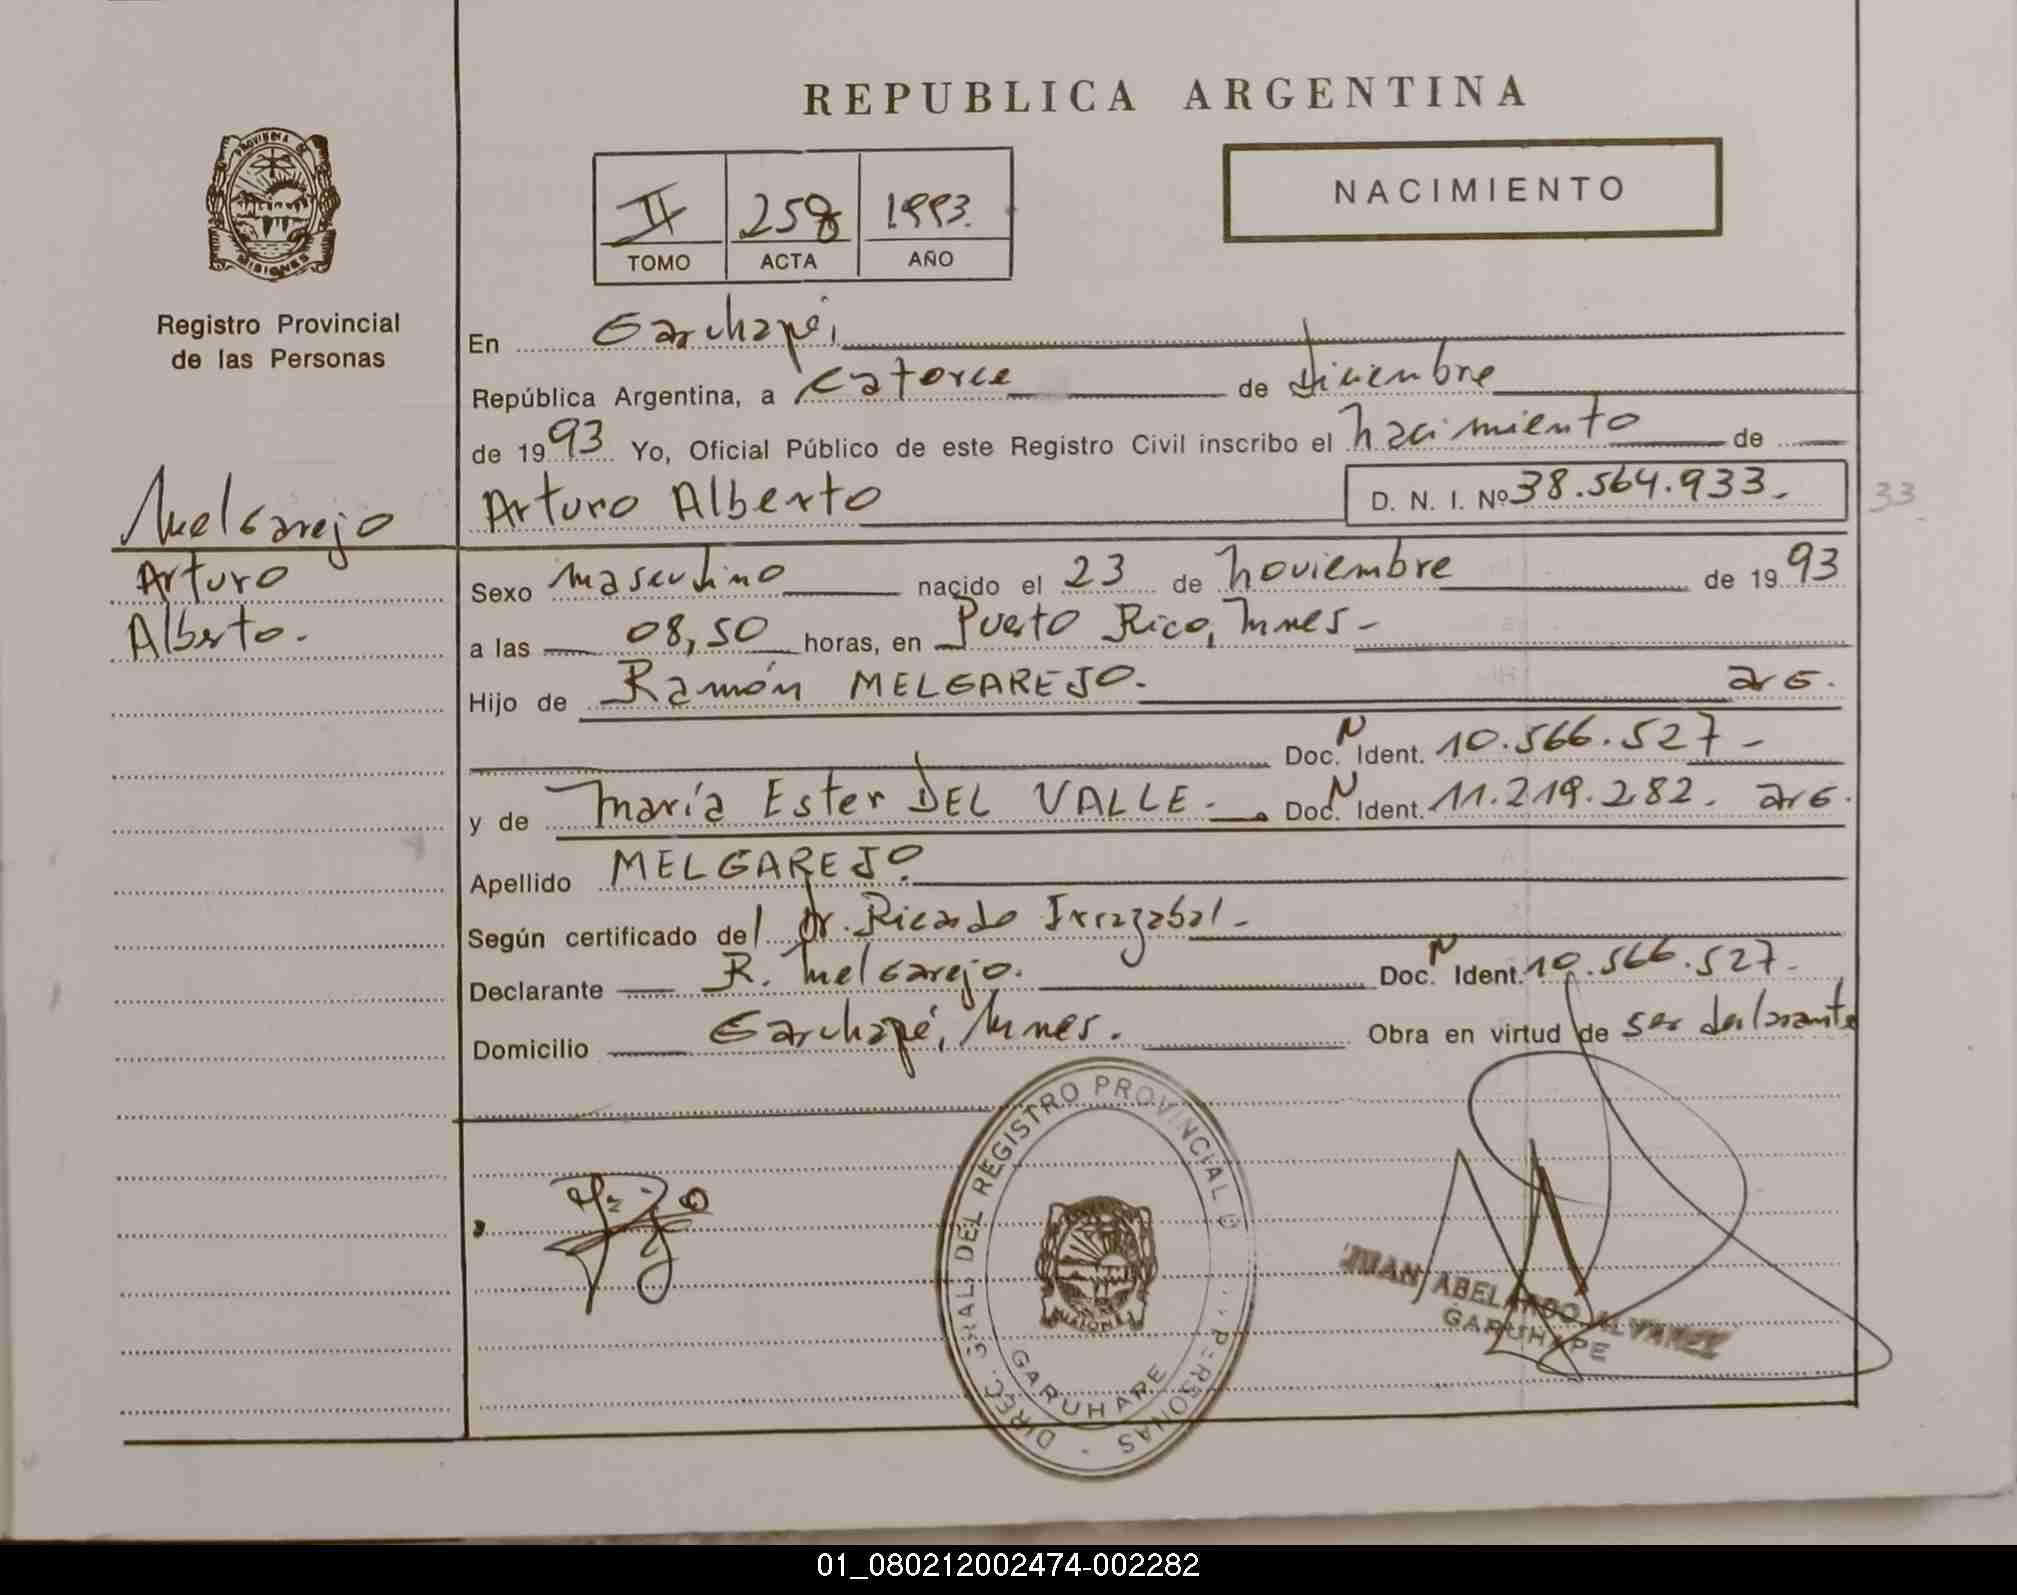 REPUBLICA ARGENTINA
PROVINCIA DE MISIONES
Registro Provincial
de las Personas
II 258 1993.
TOMO ACTA AÑO
NACIMIENTO
En Garuhapé,
República Argentina, a catorce de Diciembre
de 1993 Yo, Oficial Público de este Registro Civil inscribo el nacimiento de
Arturo Alberto D. N. I. Nº 38.564.933.-
33
Melgarejo
Arturo
Alberto.
Sexo masculino nacido el 23 de noviembre de 1993
a las 08,50 horas, en Puerto Rico, Mnes-
Hijo de Ramón MELGAREJO. arg.
Doc. N Ident. 10.566.527-
y de María Ester DEL VALLE. Doc. N Ident. 11.219.282. arg.
Apellido MELGAREJO.
Según certificado del Dr. Ricardo Irrazabal-
Declarante R. Melgarejo. Doc. N Ident. 10.566.527.-
Domicilio Garuhapé, Mnes. Obra en virtud de ser declarante
DIREC. GRAL. DEL REGISTRO PROVINCIAL D PERSONAS
GARUHAPE
MISIONES
JUAN ABELARDO ALVAREZ
GARUHAPE
01_080212002474-002282